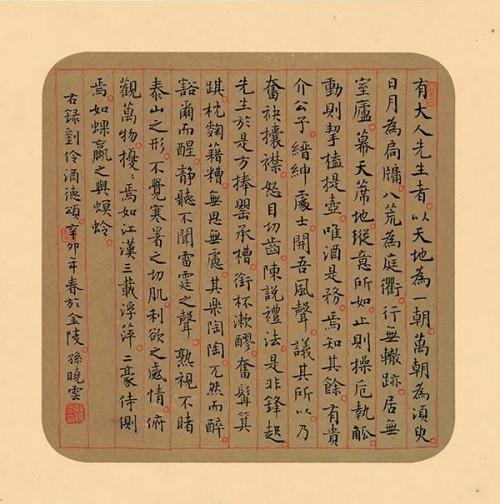 有大人先生者。以天地為一朝。萬朝為須臾。
日月為扃牖。八荒為庭衢。行無轍跡。居無
室廬。幕天席地。縱意所如。止則操卮執觚。
動則挈榼提壺。唯酒是務。焉知其餘。有貴
介公子。縉紳處士。聞吾風聲。議其所以。乃
奮袂攘襟。怒目切齒。陳說禮法。是非鋒起。
先生於是方捧罌承槽。銜杯漱醪。奮髯箕
踑。枕麴藉糟。無思無慮。其樂陶陶。兀然而醉。
豁爾而醒。靜聽不聞雷霆之聲。熟視不睹
泰山之形。不覺寒暑之切肌。利欲之感情。俯
觀萬物。擾〻焉如江漢三載浮萍。二豪侍側
焉。如蜾蠃之與螟蛉。
右錄劉伶酒德頌。辛卯年春於金陵 孫曉雲